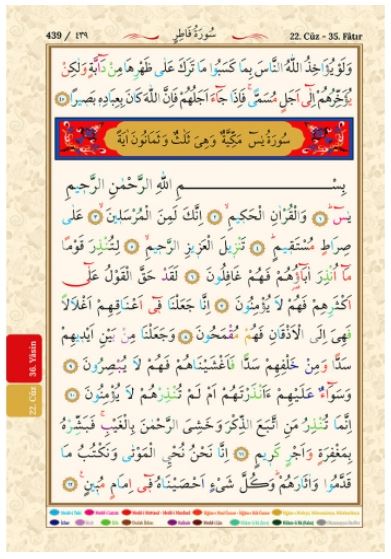 439 / ٤٣٩
سُورَةُ فَاطِرٍ
22. Cüz - 35. Fâtır
وَلَوْ يُؤَاخِذُ اللّٰهُ النَّاسَ بِمَا كَسَبُوا مَا تَرَكَ عَلٰى ظَهْرِهَا مِنْ دَٓابَّةٍ وَلٰكِنْ
يُؤَخِّرُهُمْ اِلٰٓى اَجَلٍ مُسَمًّىۚ فَاِذَا جَٓاءَ اَجَلُهُمْ فَاِنَّ اللّٰهَ كَانَ بِعِبَادِه۪ بَص۪يرًا ﴿٤٥﴾
سُورَةُ يٰسٓ مَكِّيَّةٌ وَهِيَ ثَلٰثٌ وَثَمَانُونَ اٰيَةً
بِسْمِ اللّٰهِ الرَّحْمٰنِ الرَّح۪يمِ
يٰسٓۜ ﴿١﴾ وَالْقُرْاٰنِ الْحَك۪يمِۙ ﴿٢﴾ اِنَّكَ لَمِنَ الْمُرْسَل۪ينَۙ ﴿٣﴾ عَلٰى
صِرَاطٍ مُسْتَق۪يمٍۜ ﴿٤﴾ تَنْز۪يلَ الْعَز۪يزِ الرَّح۪يمِۙ ﴿٥﴾ لِتُنْذِرَ قَوْمًا
مَٓا اُنْذِرَ اٰبَٓاؤُ۬هُمْ فَهُمْ غَافِلُونَ ﴿٦﴾ لَقَدْ حَقَّ الْقَوْلُ عَلٰٓى
اَكْثَرِهِمْ فَهُمْ لَا يُؤْمِنُونَ ﴿٧﴾ اِنَّا جَعَلْنَا ف۪ٓي اَعْنَاقِهِمْ اَغْلَالًا
فَهِيَ اِلَى الْاَذْقَانِ فَهُمْ مُقْمَحُونَ ﴿٨﴾ وَجَعَلْنَا مِنْ بَيْنِ اَيْد۪يهِمْ
سَدًّا وَمِنْ خَلْفِهِمْ سَدًّا فَاَغْشَيْنَاهُمْ فَهُمْ لَا يُبْصِرُونَ ﴿٩﴾
وَسَوَٓاءٌ عَلَيْهِمْ ءَاَنْذَرْتَهُمْ اَمْ لَمْ تُنْذِرْهُمْ لَا يُؤْمِنُونَ ﴿١٠﴾
اِنَّمَا تُنْذِرُ مَنِ اتَّبَعَ الذِّكْرَ وَخَشِيَ الرَّحْمٰنَ بِالْغَيْبِۚ فَبَشِّرْهُ
بِمَغْفِرَةٍ وَاَجْرٍ كَر۪يمٍ ﴿١١﴾ اِنَّا نَحْنُ نُحْيِ الْمَوْتٰى وَنَكْتُبُ مَا
قَدَّمُوا وَاٰثَارَهُمْۜ وَكُلَّ شَيْءٍ اَحْصَيْنَاهُ ف۪ٓي اِمَامٍ مُب۪ينٍ۟ ﴿١٢﴾
36. Yâsin
22. Cüz